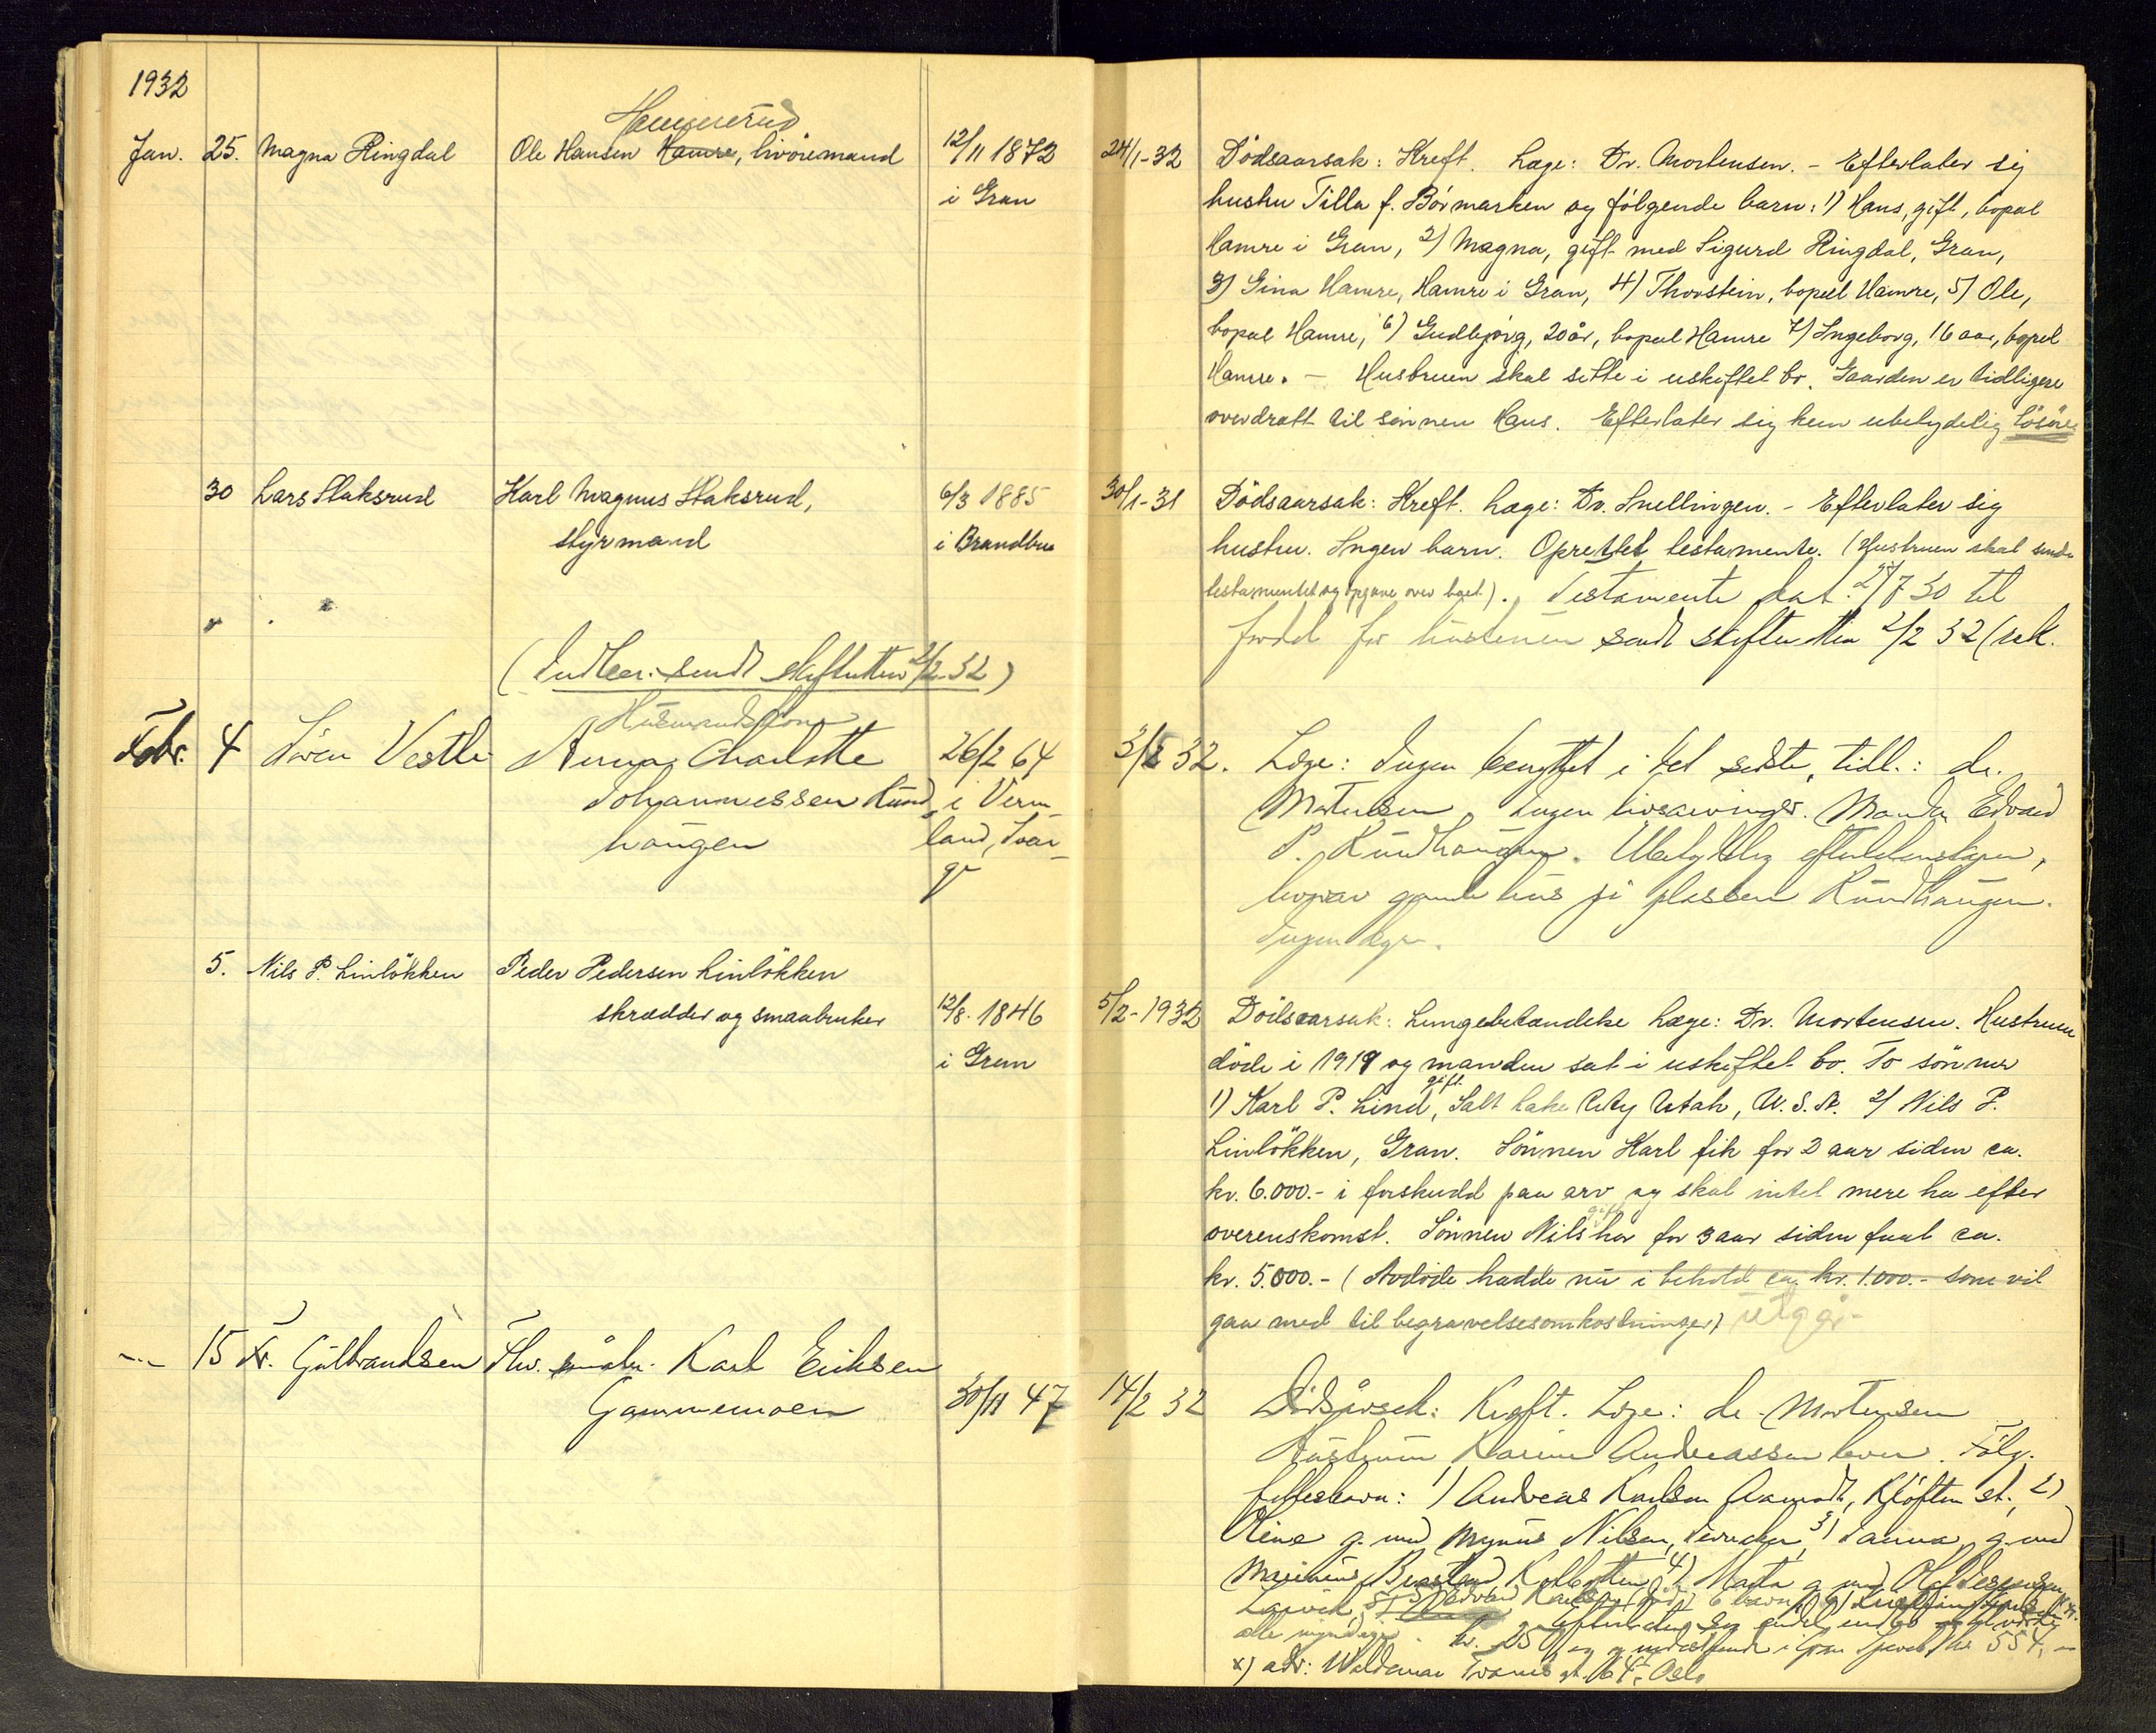 1932
Jan. 25. Magna Ringdal
Hammerud
Ole Hansen Hamre, livöremand
12/11 1872
i Gran
24/1-32
Dödsaarsak: Kreft. Læge: Dr. Mortensen. - Efterlater sig
hustru Tilla f. Börmarken og fölgende barn: 1) Hans, gift, bopæl
Hamre i Gran, 2) Magna, gift med Sigurd Ringdal, Gran,
3) Gina Hamre, Hamre i Gran, 4) Thorstein, bopæl Hamre, 5) Ole,
bopæl Hamre, 6) Gudbjörg, 20 år, bopæl Hamre 7) Ingeborg, 16 aar, bopæl
Hamre. - Hustruen skal sitte i uskiftet bo. Gaarden er tidligere
overdratt til sönnen Hans. Efterlater sig kun ubetydelig lösöre
30 Lars Staksrud
Karl Magnus Staksrud,
styrmand
6/3 1885
i Brandbu
30/1-31
Dödsaarsak: Kreft. Læge: Dr. Snellingen. - Efterlater sig
hustru. Ingen barn. Oprettet testamente. (Hustruen skal sende
testamentet og opgave over boet). Testamente dat. 7 30 til
fordel for hustruen sendt skifteretten 2/2 32 (rek.
(Indber. sendt skifteretten 2/2-32)
Febr. 4 Sören Vestli
Husmandskone
Anna Charlotte
Johannessen Rund
haugen
26/2 64
i Verm
land, Sver
ge
3/2 32.
Læge: Ingen benyttet i det sidste, tidl.: dr.
Mortensen. Ingen livsarvinger. Manden Edvard
P. Rundhaugen. Ubetydelig efterladenskaper,
hvorav gamle hus på plassen Rundhaugen.
Ingen
5. Nils P. Linlökken
Peder Pedersen Linlökken
skrædder og smaabruker
12/8. 1846
i Gran
5/2-1932
Dödsaarsak: Lungebetændelse Læge: Dr. Mortensen. Hustruen
döde i 1919 og manden sat i uskiftet bo. To sönner
1) Karl P. Lind, gift, Salt Lake City Utah, U.S.A. 2) Nils P.
Linlökken, Gran. Sönnen Karl fik for 2 aar siden ca.
kr. 6.000.- i forskudd paa arv og skal intet mere ha efter
overenskomst. Sönnen Nils gift har for 3 aar siden faat ca.
kr. 5.000.- (Avdöde hadde nu i behold ca. kr. 1.000.- som vil
gaa med til begravelsesomkostninger) utgår
-"- 15 Fr. Gulbrandsen
Fhv. småbr. Karl Eriksen
Gammemoen
30/11 47
14/2 32
Dödsårsak: Kreft. Læge: dr. Mortensen
Hustruen Karen Andreassen lever. Fölg.
fellesbarn: 1) Andreas Karlsen Aamodt, Klöften st., 2)
Oline g. med Magnus Nilsen, 3) g. med
Marinius 4) Marta g. med
Larvik, 5) Edvard Karlsen 6 barn
alle myndige. Efterlater sig
kr. 250 og i Gran Sparebk. kr. 554,-
x) adr: Waldemar Tranes gt. 64, Oslo